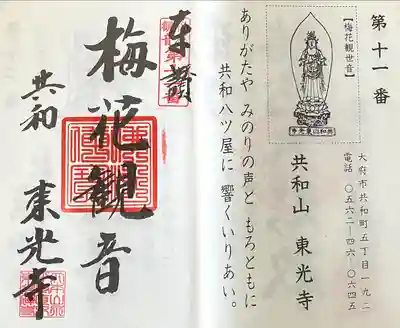 第十一番
【梅花観世音】
共和山東光寺
大府市共和町五丁目一九二
電話 〇五六二―四六―〇六四五
共和山 東光寺
ありがたや みのりの声と もろともに
共和八ツ屋に 響くいりあい。
奉拝
梅花観音
共和
東光寺